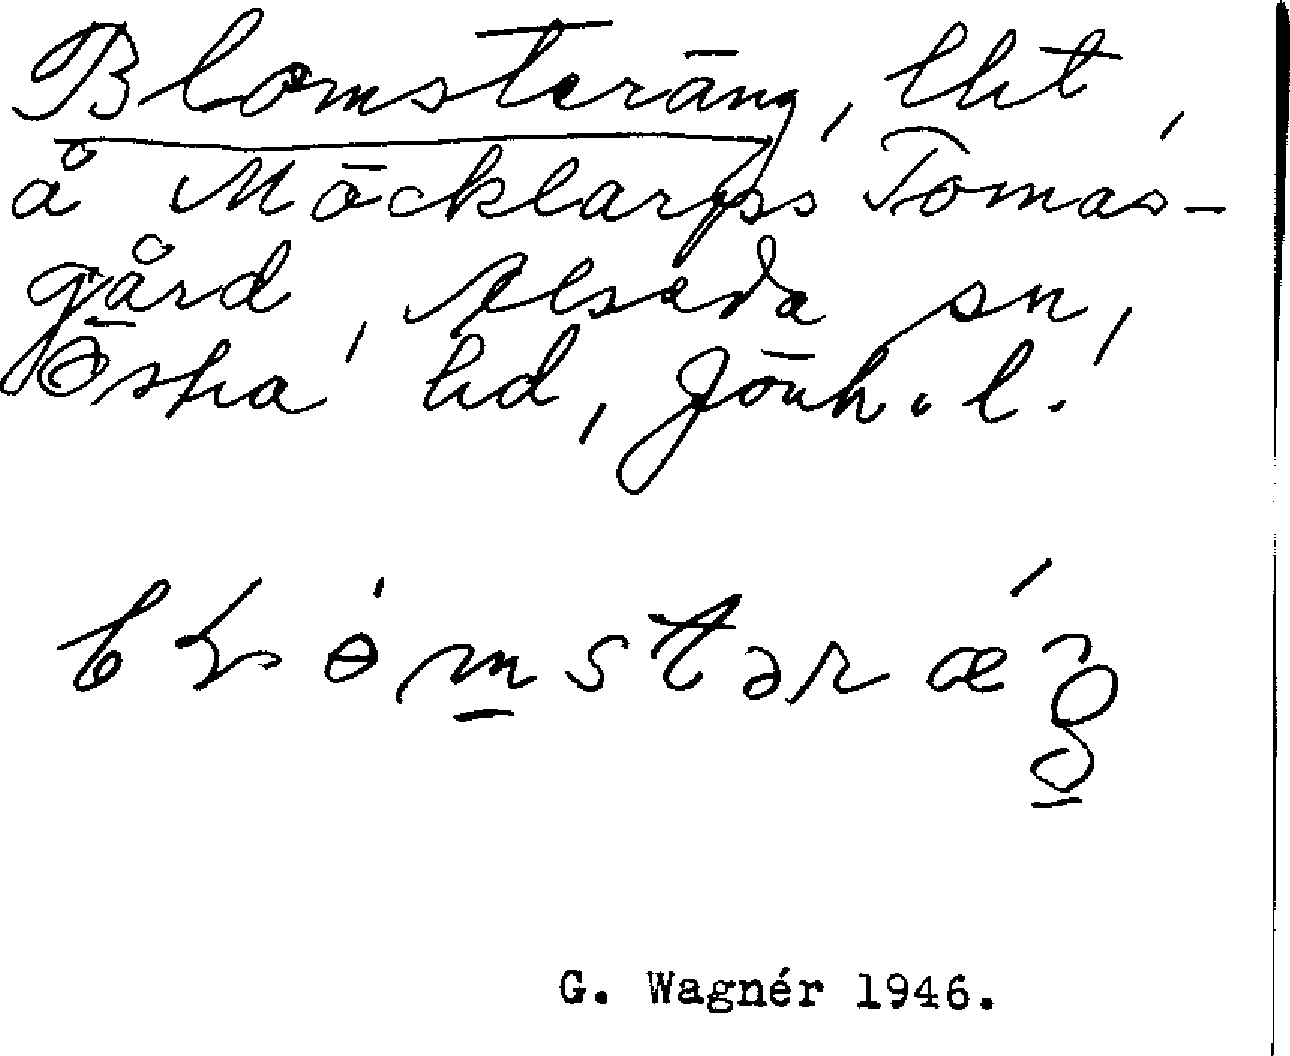 Blomsteräng, lht,
å Möcklarps Tomas-
gård, Alseda sn,
Östra hd, Jönk. l.
G. Wagnér 1946.